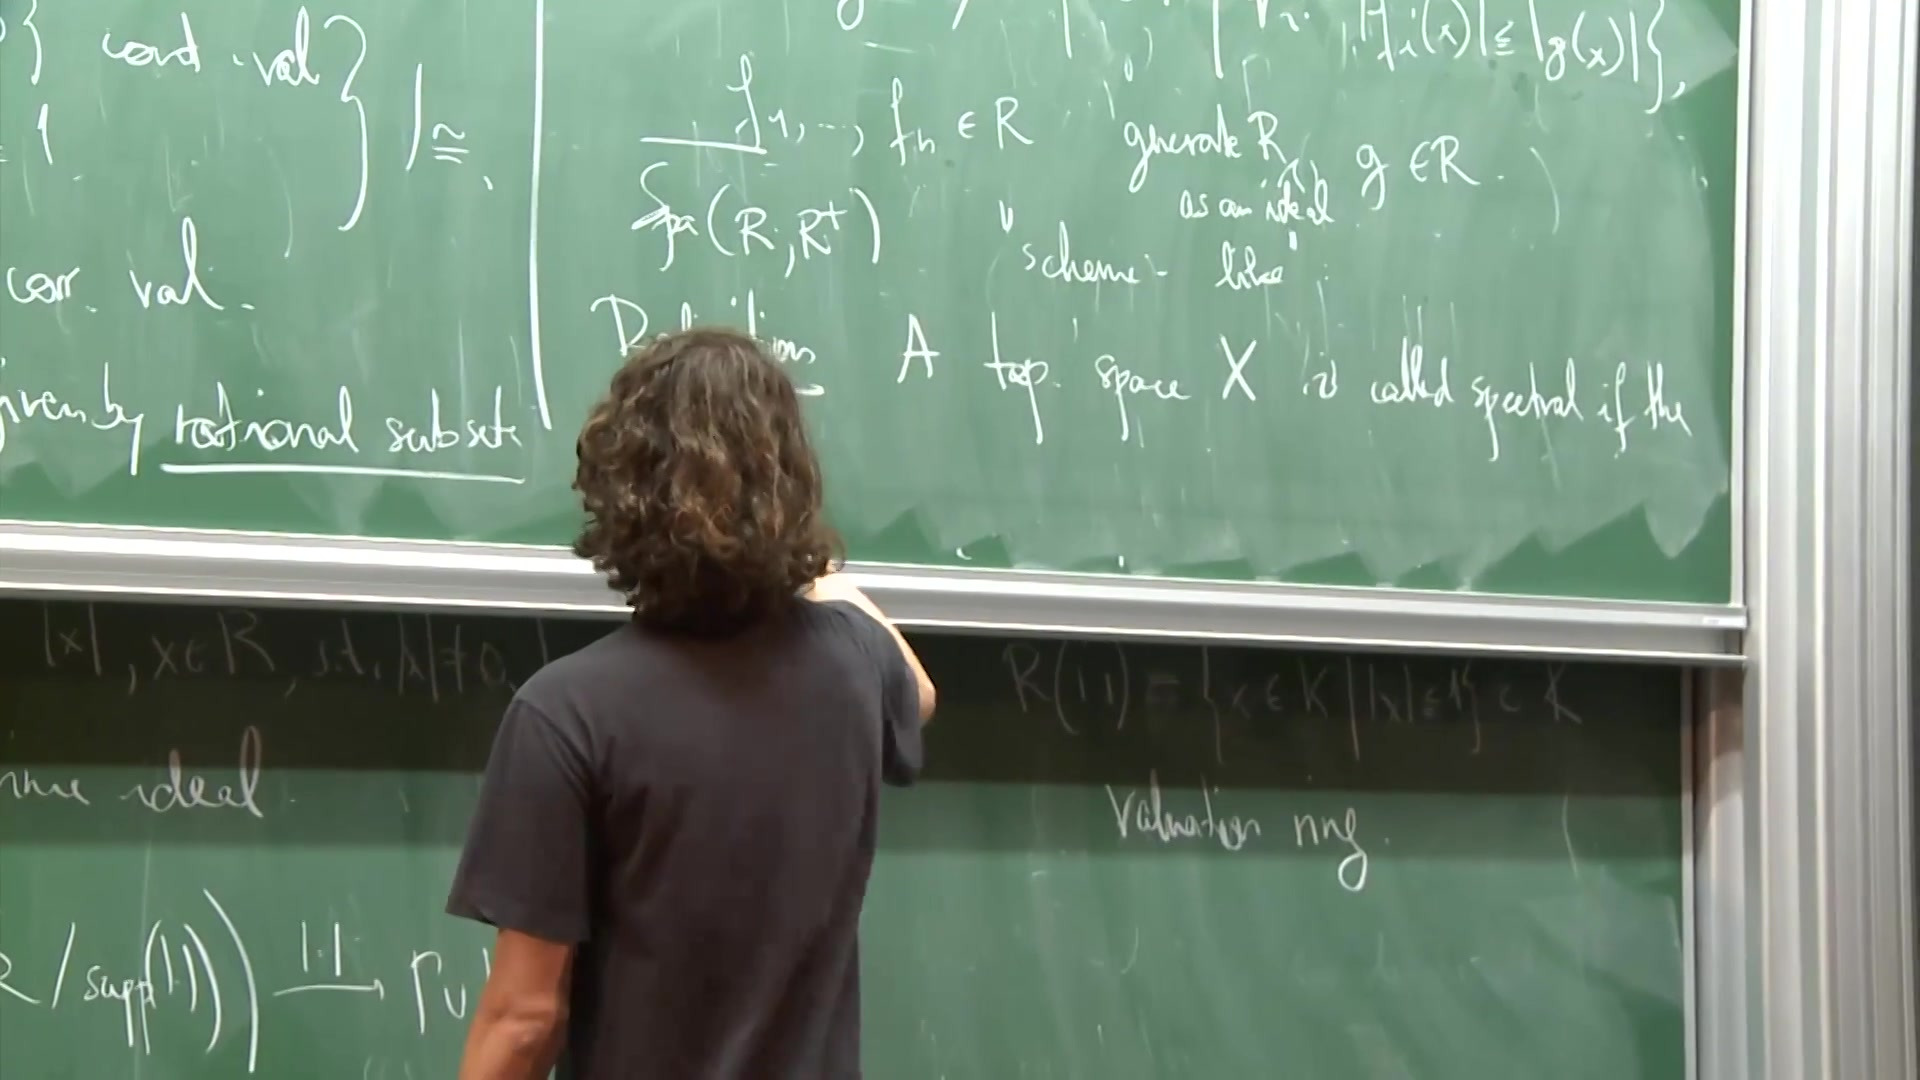 } cont. val }
= 1 } / ≅.
corr. val.
given by rational subsets
| ∀i, |f_i(x)| ≤ |g(x)|},
f_1, .., f_n ∈ R "generate R as an ideal", g ∈ R.
Spa(R, R⁺) "scheme-like".
A top. space X is called spectral if the
|x|, x ∈ R, s.t. |x| ≠ 0,
ideal.
R/supp(|.|)) |.|→ Γ ∪
R(|.|) = {x ∈ K | |x| ≤ 1} ⊂ K
valuation ring.